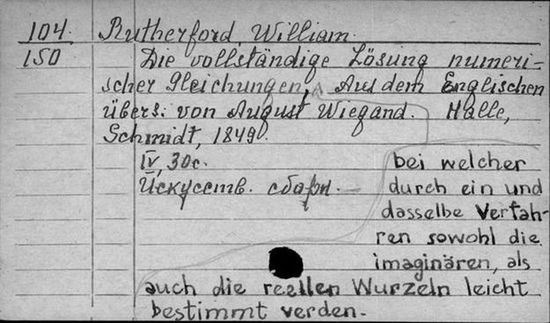 104. Rutherford, William.
150 Die vollständige Lösung numeri-
scher Gleichungen, Aus dem Englischen
übers. von August Wiegand. Halle,
Schmidt, 1849.
IV, 30c.
Искусств. сборн. —
bei welcher
durch ein und
dasselbe Verfah-
ren sowohl die
imaginären, als
auch die reellen Wurzeln leicht
bestimmt verden.